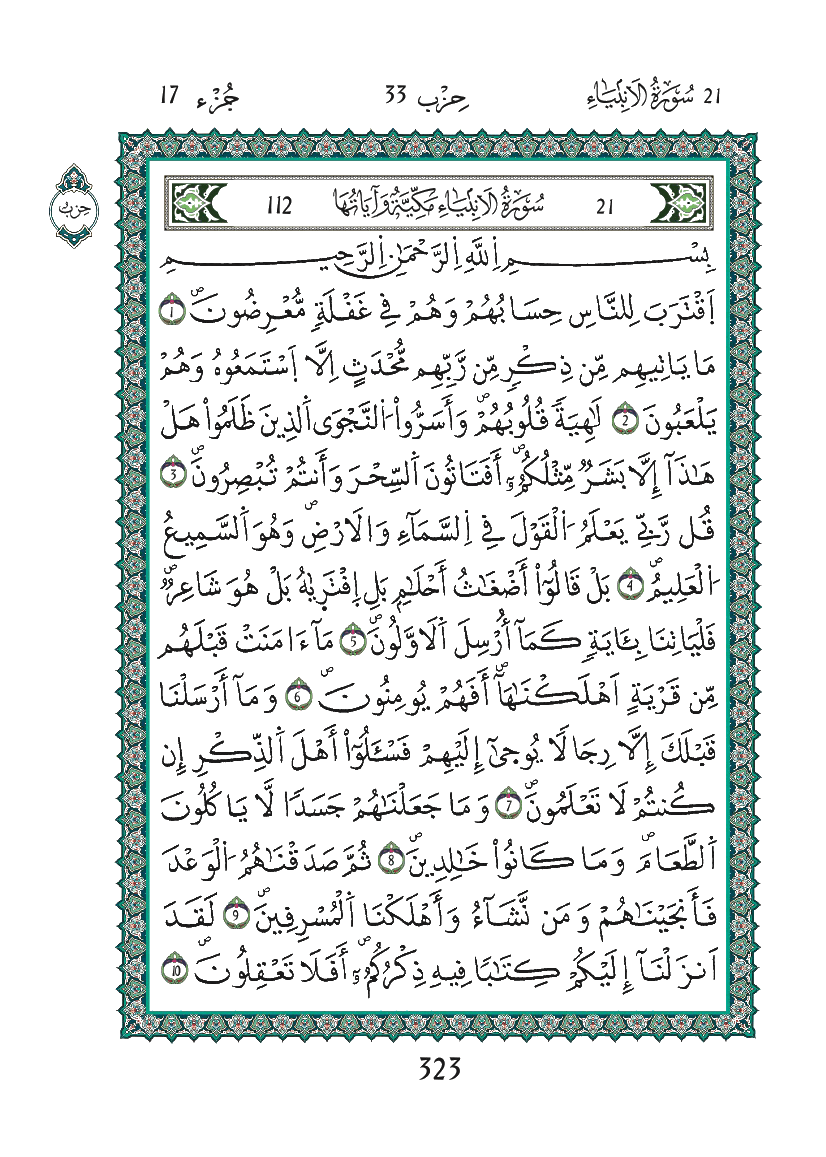 21 سُورَةُ الَانبِيَاءِ حِزْب 33 جُزْء 17
حِزْب
21 سُورَةُ الَانبِيَاءِ مَكِّيَّةٌ وَآيَاتُهَا 112
بِسْمِ اِللَّهِ اِلرَّحْمَٰنِ اِلرَّحِيمِ
اَقْتَرَبَ لِلنَّاسِ حِسَابُهُمْ وَهُمْ فِي غَفْلَةٍ مُّعْرِضُونَۖ 1
مَا يَاتِيهِم مِّن ذِكْرٍ مِّن رَّبِّهِم مُّحْدَثٍ اِلَّا اَسْتَمَعُوهُ وَهُمْ
يَلْعَبُونَ 2 لَٰهِيَةٗ قُلُوبُهُمْۖ وَأَسَرُّواْ اُلنَّجْوَى اَلذِينَ ظَلَمُواْ هَلْ
هَٰذَآ إِلَّا بَشَرٞ مِّثْلُكُمُۥٓۖ أَفَتَاتُونَ اَلسِّحْرَ وَأَنتُمْ تُبْصِرُونَۖ 3
قُل رَّبِّي يَعْلَمُ اُلْقَوْلَ فِي اِلسَّمَآءِ وَالَارْضِۖ وَهُوَ اَلسَّمِيعُ
اُلْعَلِيمُۖ 4 بَلْ قَالُوٓاْ أَضْغَٰثُ أَحْلَٰمِۢ بَلِ اِفْتَرِيٰهُ بَلْ هُوَ شَاعِرٞۖ
فَلْيَاتِنَا بِـَٔايَةٖ كَمَآ أُرْسِلَ اَلَاوَّلُونَۖ 5 مَآ ءَامَنَتْ قَبْلَهُم
مِّن قَرْيَةٍ اَهْلَكْنَٰهَآۖ أَفَهُمْ يُومِنُونَۖ 6 وَمَآ أَرْسَلْنَا
قَبْلَكَ إِلَّا رِجَالٗا يُوحَىٰٓ إِلَيْهِمْ فَسْـَٔلُوٓاْ أَهْلَ اَلذِّكْرِ إِن
كُنتُمْ لَا تَعْلَمُونَۖ 7 وَمَا جَعَلْنَٰهُمْ جَسَدٗا لَّا يَاكُلُونَ
اَلطَّعَامَۖ وَمَا كَانُواْ خَٰلِدِينَۖ 8 ثُمَّ صَدَقْنَٰهُمُ اُلْوَعْدَ
فَأَنجَيْنَٰهُمْ وَمَن نَّشَآءُ وَأَهْلَكْنَا اَلْمُسْرِفِينَۖ 9 لَقَدَ
اَنزَلْنَآ إِلَيْكُمْ كِتَٰبٗا فِيهِ ذِكْرُكُمُۥٓۖ أَفَلَا تَعْقِلُونَۖ 10
323